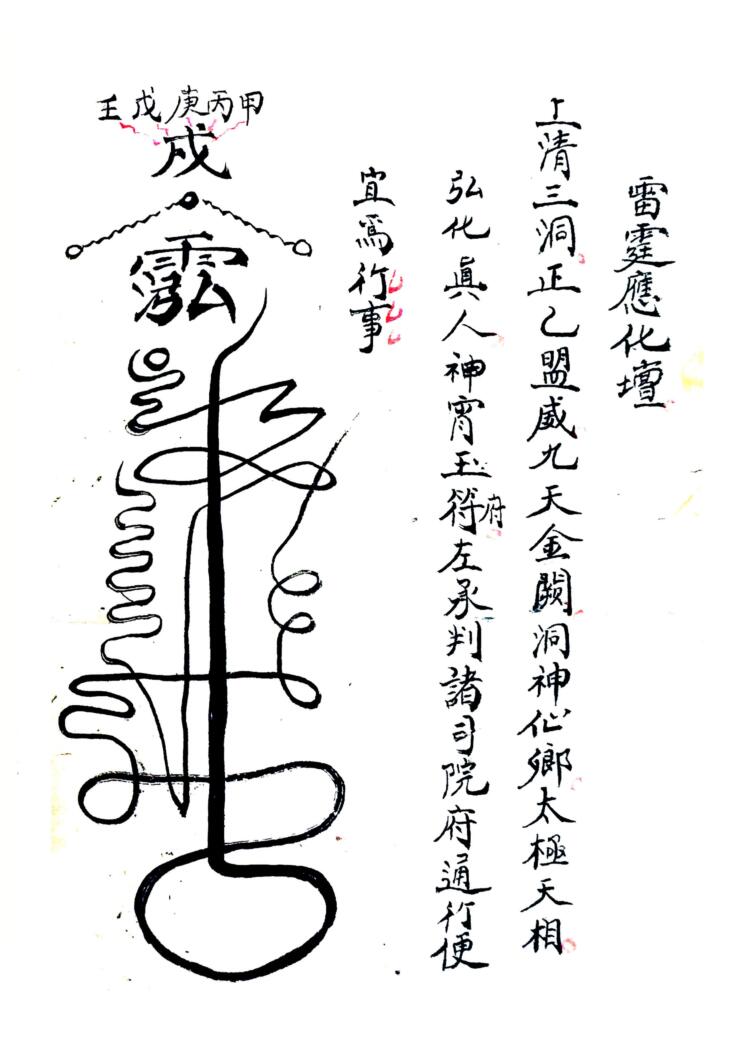 雷霆應化壇
上清三洞正乙盟威九天金闕洞神仙鄉太極天相
弘化眞人神宵玉符府左承判諸司院府通行便
宜爲行事
壬戊庚丙甲
戍